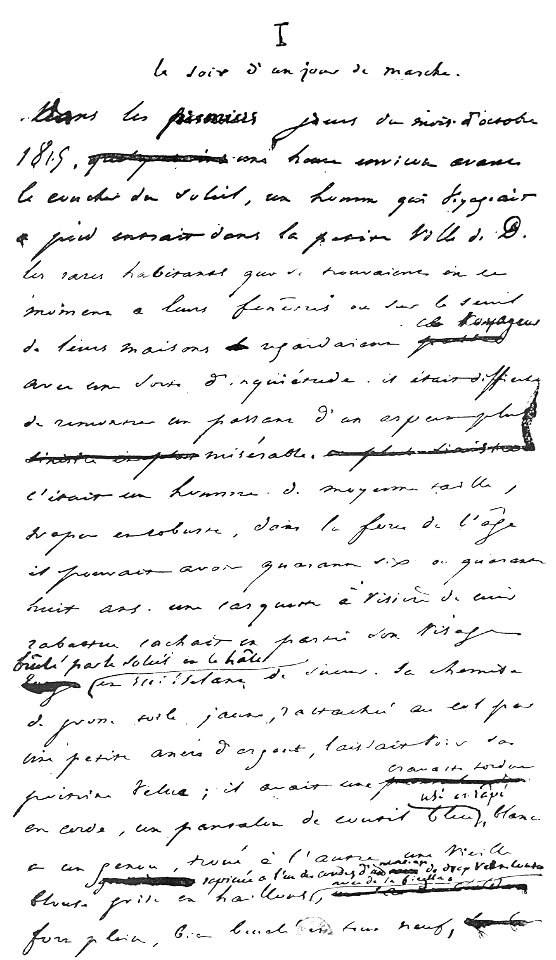 I
le soir d'un jour de marche.
Dans les premiers jours du mois d'octobre
1815, une heure environ avant
le coucher du soleil, un homme qui voyageait
à pied entrait dans la petite ville de D.
les rares habitants qui se trouvaient en ce
moment à leurs fenêtres ou sur le seuil
ce voyageur
de leurs maisons regardaient
avec une sorte d'inquiétude. il était difficile
de rencontrer un passant d'un aspect plus
misérable.
c'était un homme de moyenne taille,
trapu et robuste, dans la force de l'âge
il pouvait avoir quarante six ou quarante
huit ans. une casquette à visière de cuir
rabattue cachait en partie son visage
brûlé par le soleil et le hâle
et ruisselant de sueur. sa chemise
de grosse toile jaune, rattachée au col par
une petite ancre d'argent, laissait voir sa
cravate tordue
poitrine velue ; il avait une
usé et râpé
en corde, un pantalon de coutil bleu, blanc
à un genou, troué à l'autre, une vieille
rapiécée à l'un des coudes d'un morceau de drap vert cousu
avec de la ficelle
blouse grise en haillons,
fort plein, bien bouclé et tout neuf,